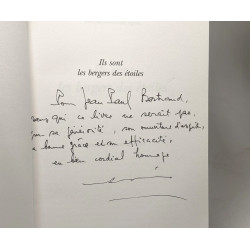 Ils sont
les bergers des étoiles
Pour Jean Paul Bertrand,
sans qui ce livre ne serait pas,
par sa générosité, son ouverture d'esprit,
sa bonne grâce et son efficacité,
en bien cordial hommage